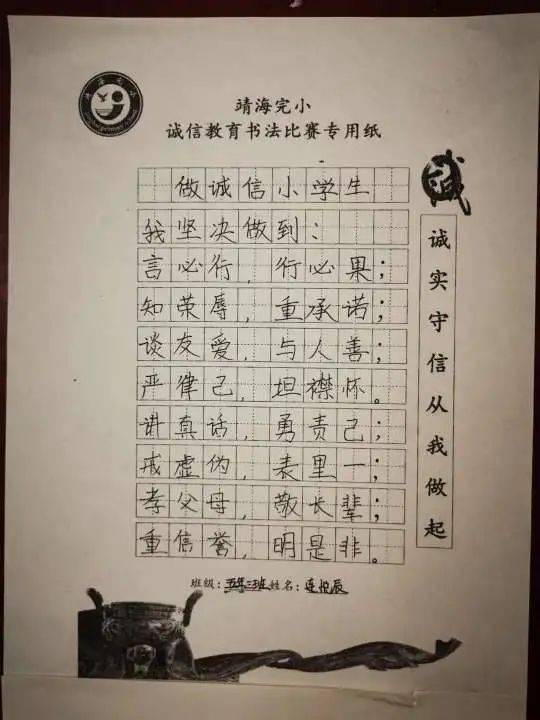 靖海完小
诚信教育书法比赛专用纸
诚
做诚信小学生
我坚决做到：
言必行，行必果；
知荣辱，重承诺；
谈友爱，与人善；
严律己，坦襟怀。
讲真话，勇责己；
戒虚伪，表里一；
孝父母，敬长辈；
重信誉，明是非。
诚实守信从我做起
班级：五年二班姓名：连悦辰